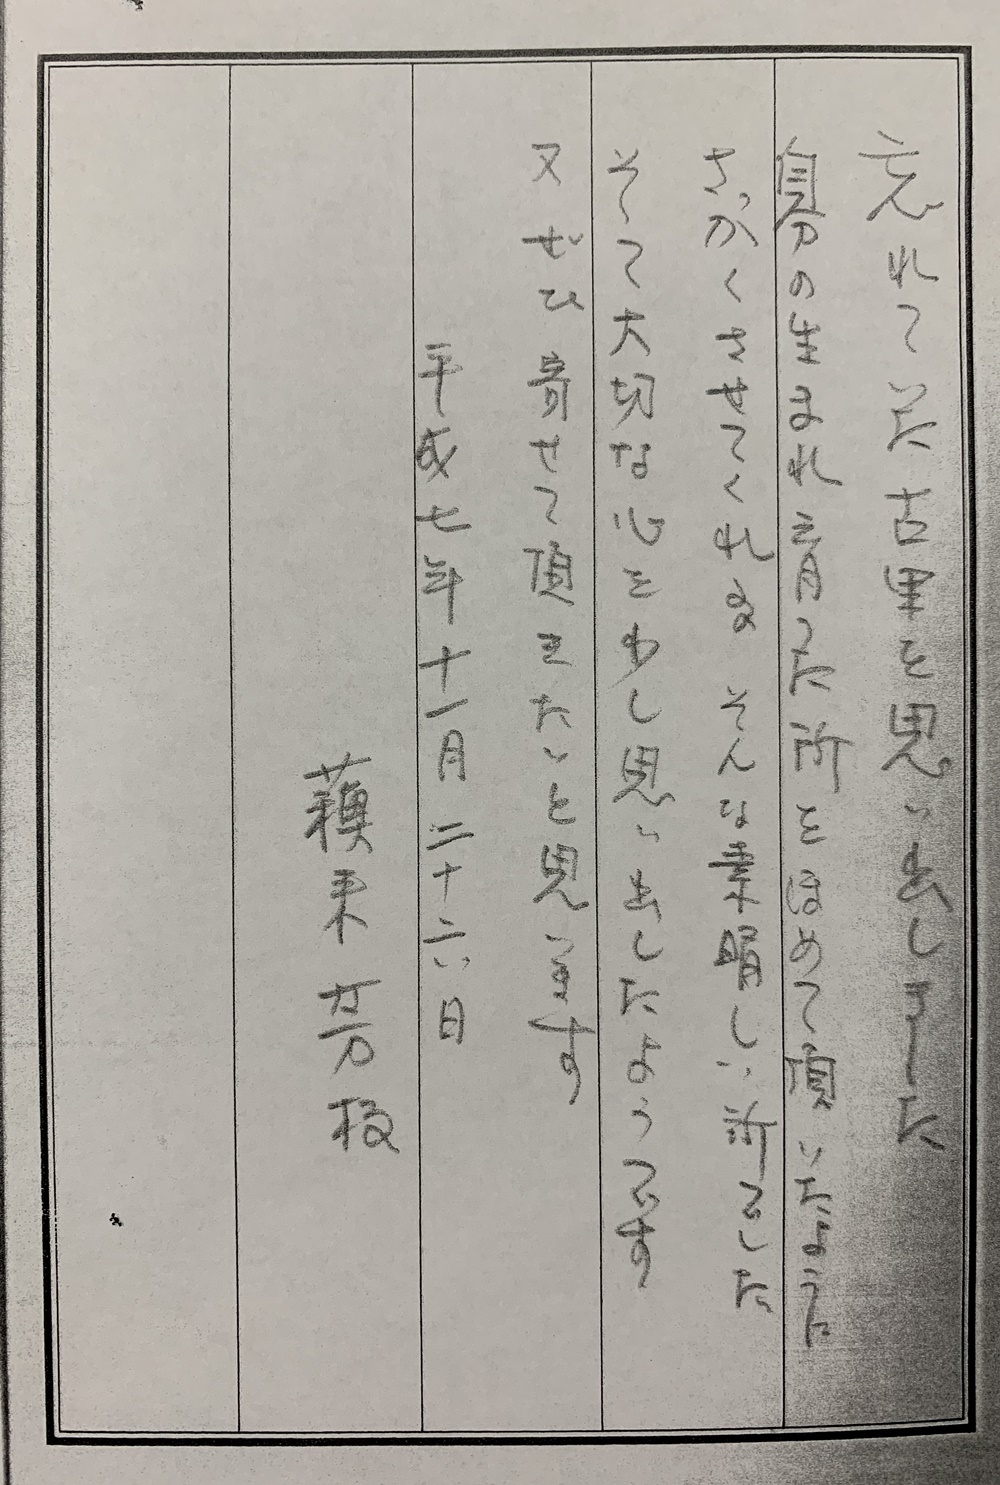 忘れていた古里を思い出しました
自分の生まれ育った所をほめて頂いたように
さっかくさせてくれる そんな素晴しい所でした
そして大切な心を少し思い出したようです
又ぜひ寄せて頂きたいと思います
平成七年十一月二十六日
芳